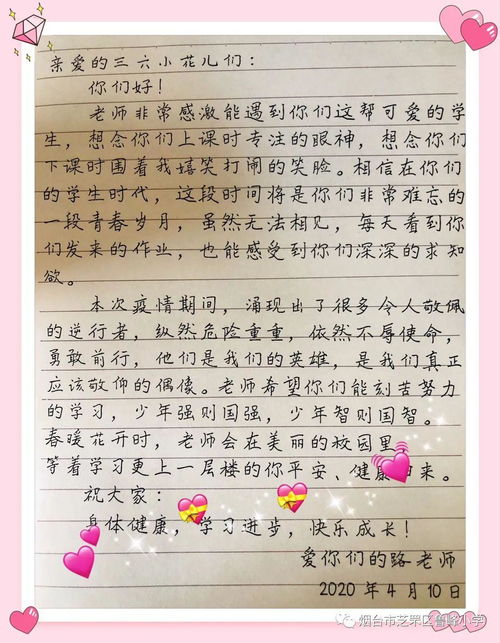 亲爱的三六小花儿们：
你们好！
老师非常感激能遇到你们这帮可爱的学
生，想念你们上课时专注的眼神，想念你们
下课时围着我嬉笑打闹的笑脸。相信在你们
的学生时代，这段时间将是你们非常难忘的
一段青春岁月，虽然无法相见，每天看到你
们发来的作业，也能感受到你们深深的求知
欲。
本次疫情期间，涌现出了很多令人敬佩
的逆行者，纵然危险重重，依然不辱使命，
勇敢前行，他们是我们的英雄，是我们真正
应该敬仰的偶像。老师希望你们能刻苦努力
的学习，少年强则国强，少年智则国智。
春暖花开时，老师会在美丽的校园里
等着学习更上一层楼的你平安、健康归来。
祝大家：
身体健康，学习进步，快乐成长！
爱你们的路老师
2020年4月10日
烟台市芝罘区鲁峰小学